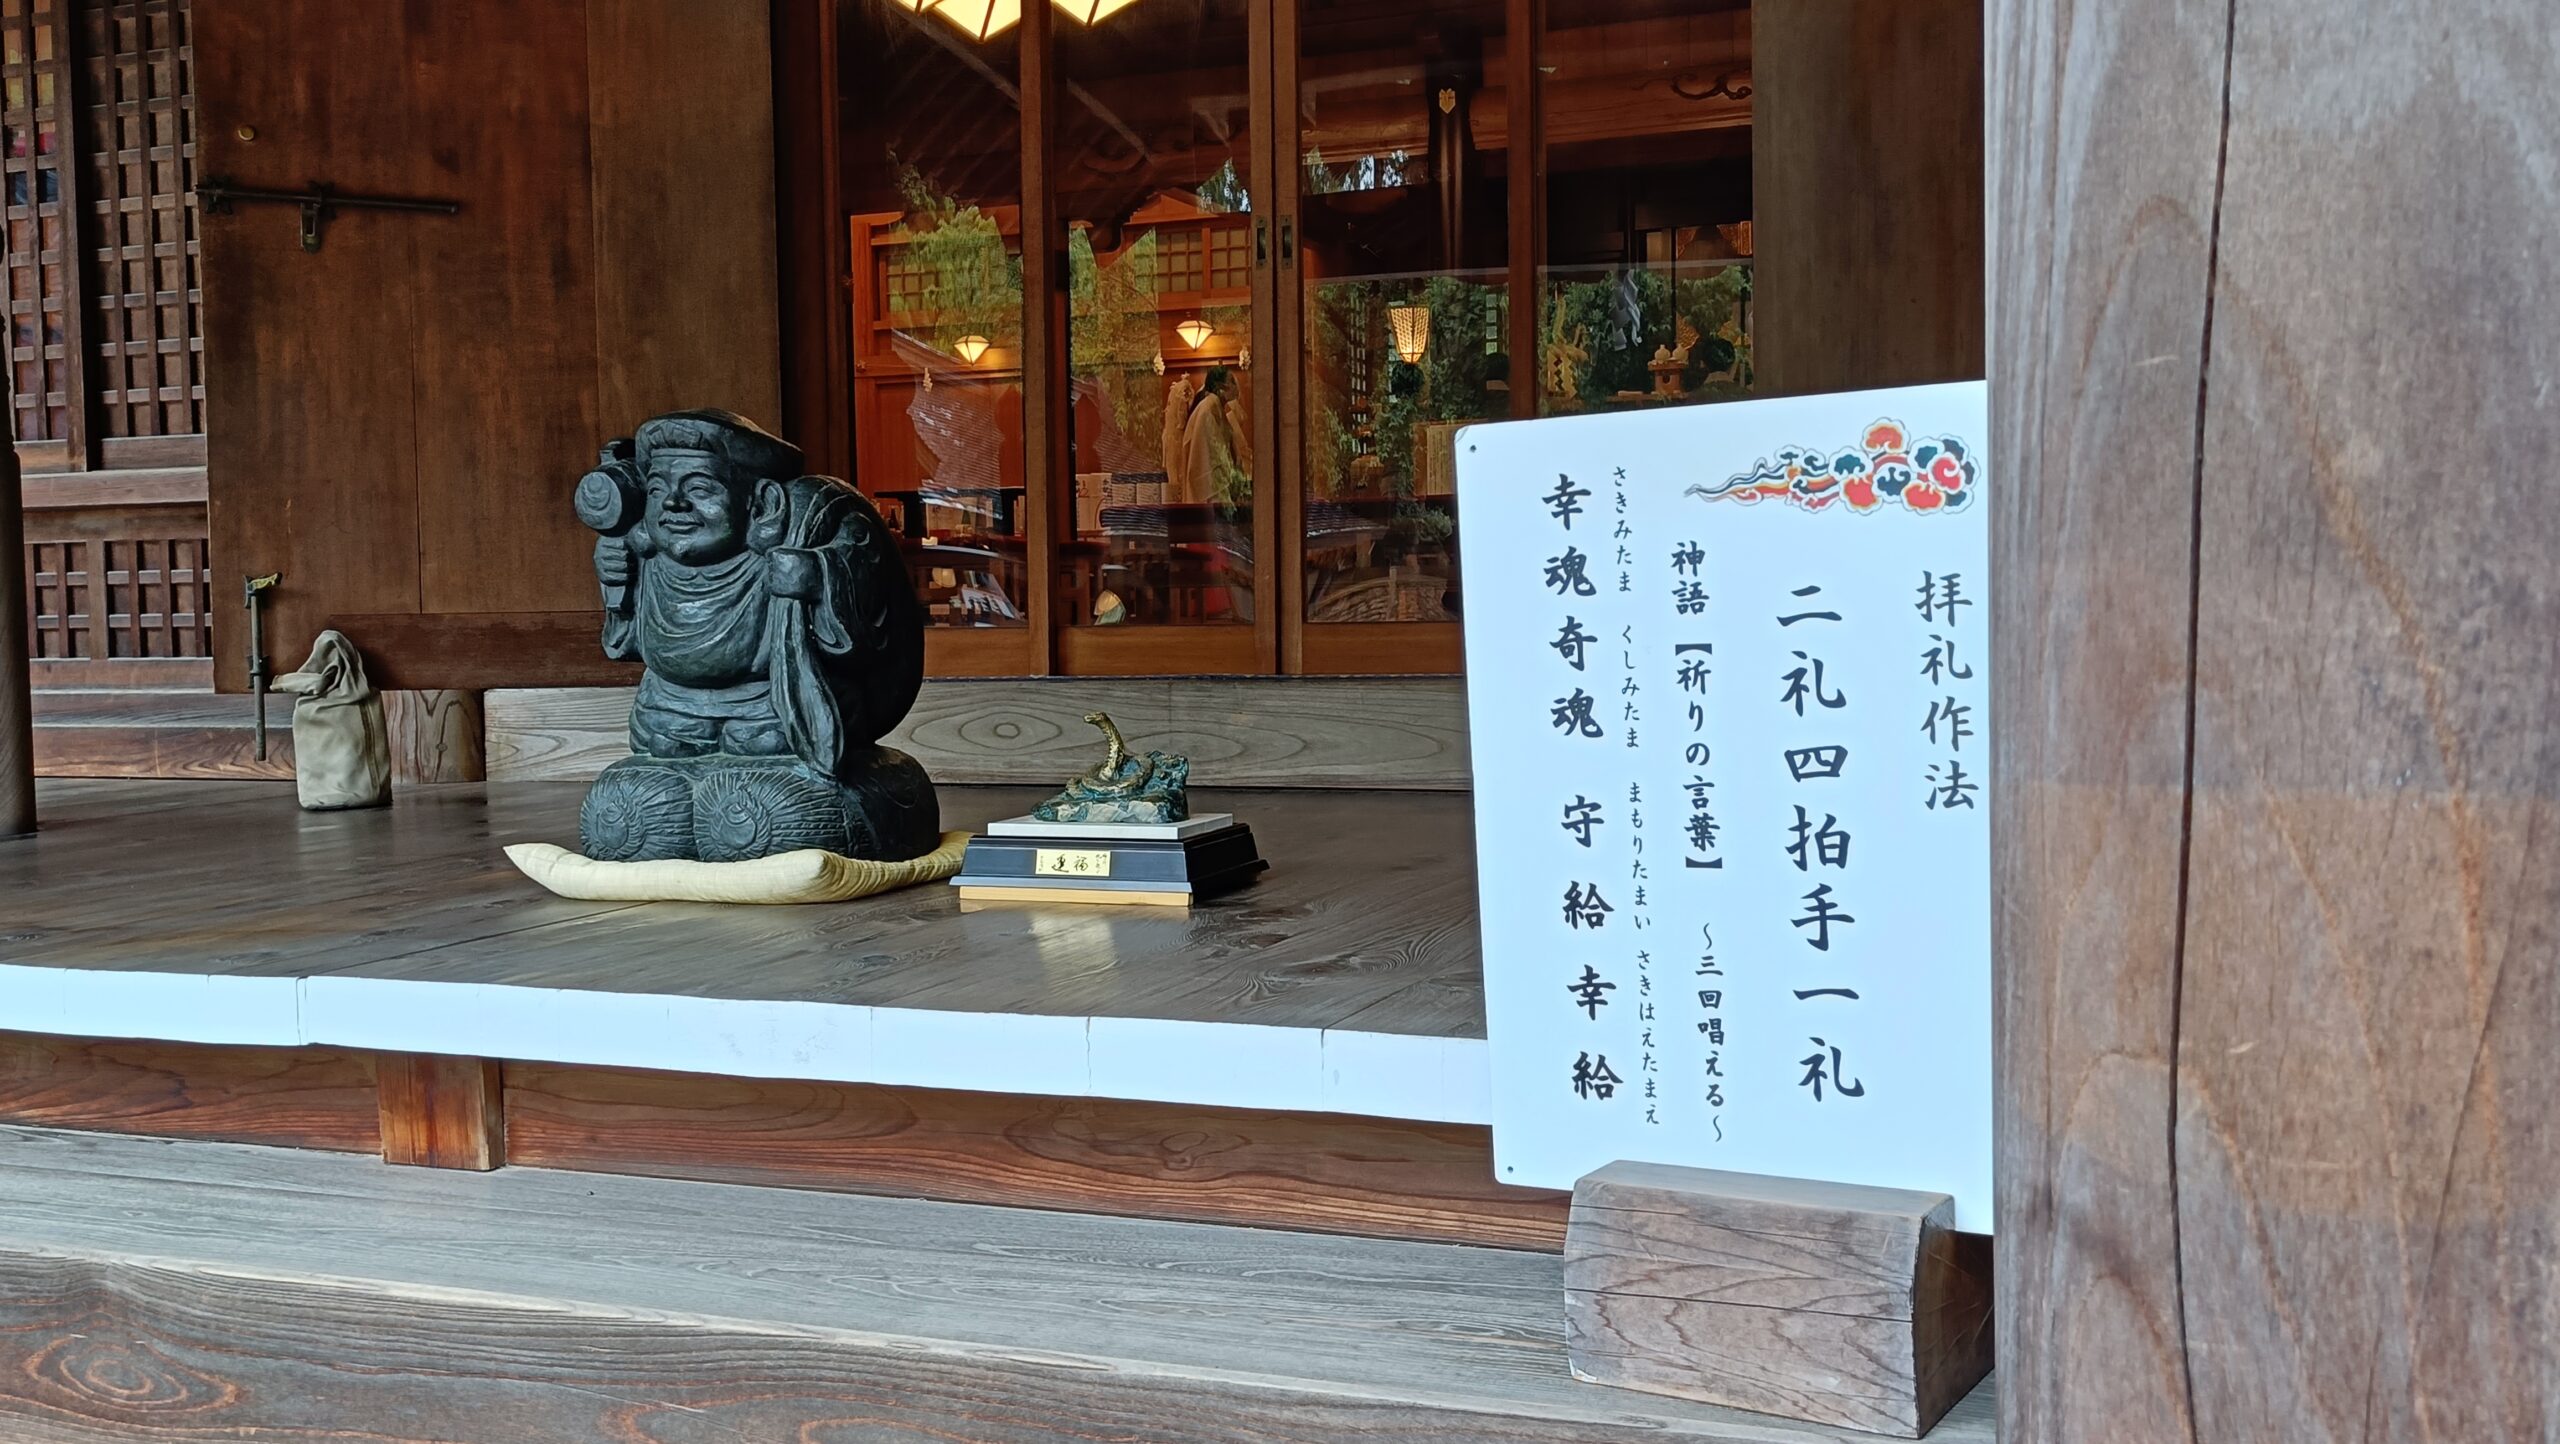 拝礼作法
二礼四拍手一礼
神語【祈りの言葉】 〜三回唱える〜
さきみたま くしみたま まもりたまい さきはえたまえ
幸魂奇魂 守給幸給
福運